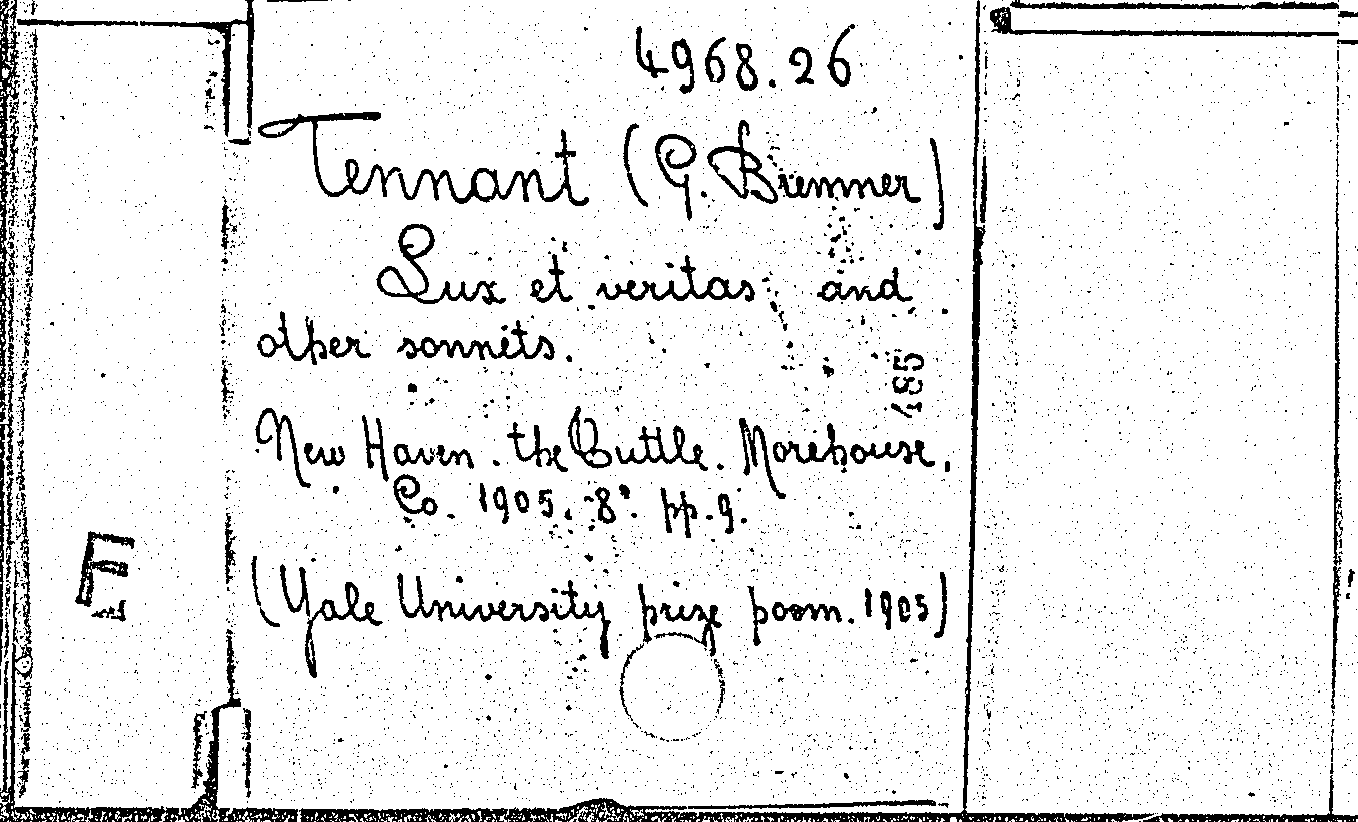 4968.26
Tennant (G. Bremner)
Lux et veritas and
other sonnets.
485
New Haven. the Buttle. Morehouse,
Co. 1905. 8° pp. 9.
(Yale University prize poem. 1905)
E